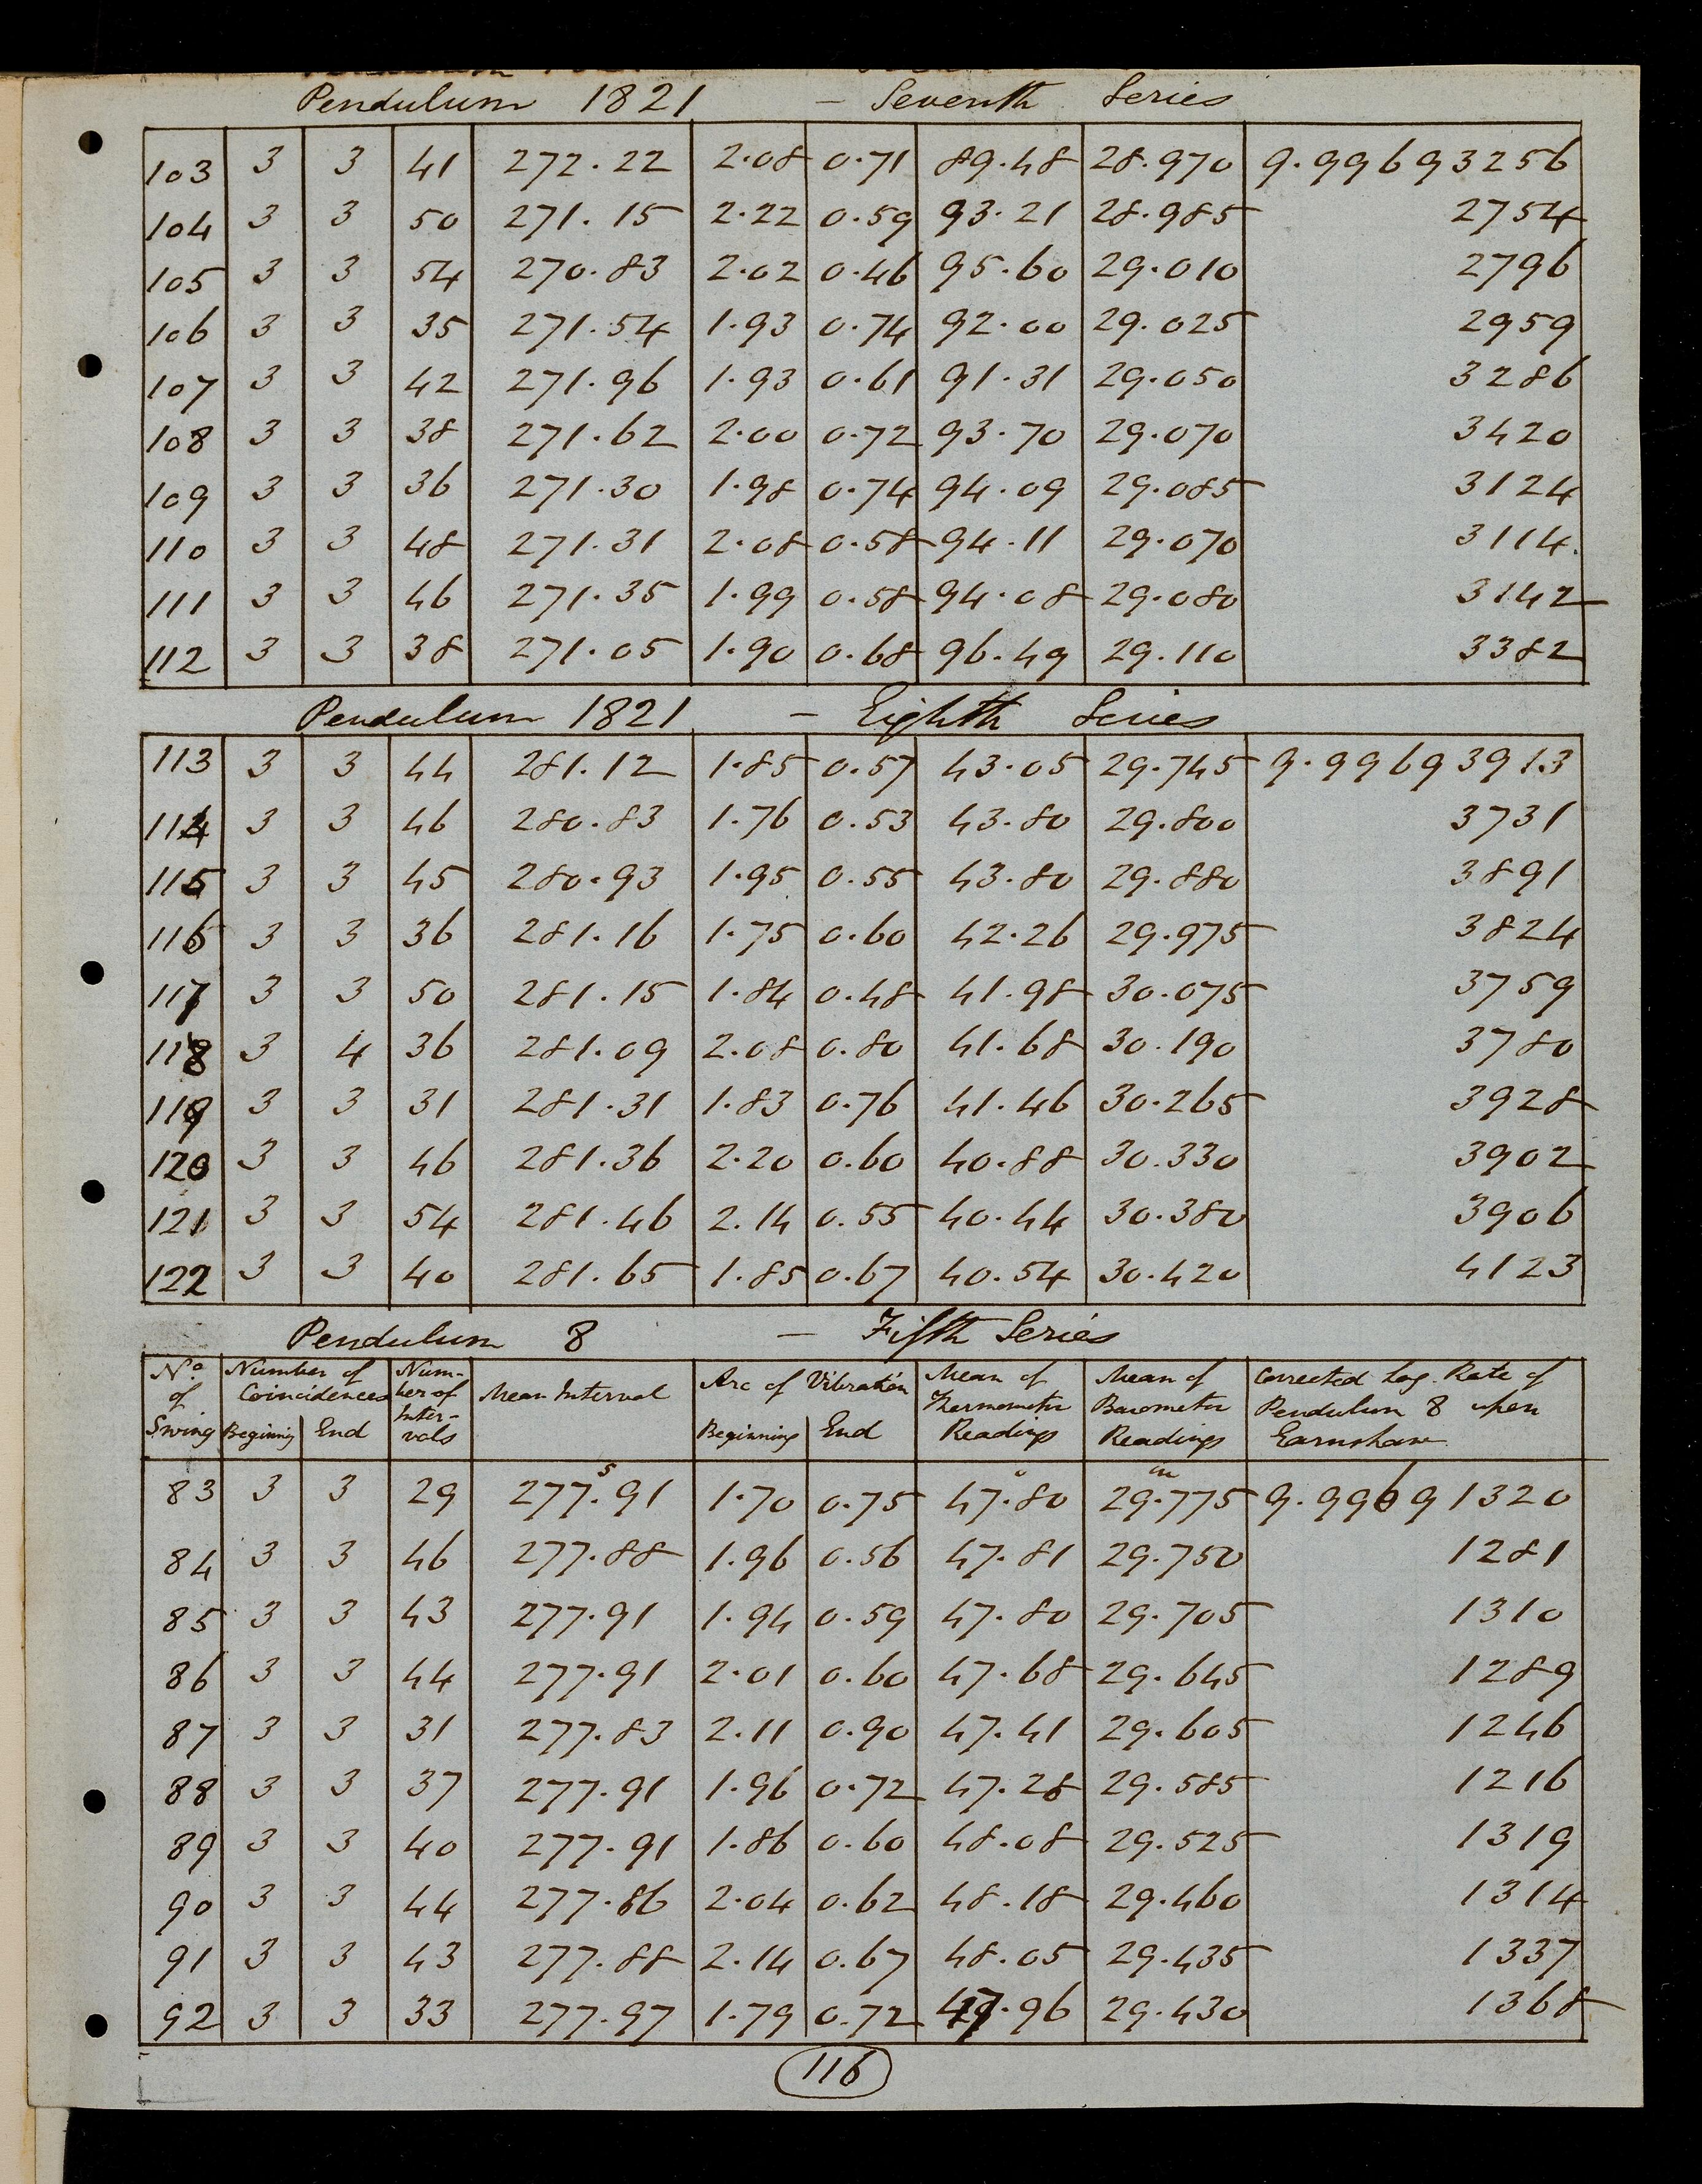 Pendulum 1821 — Seventh Series
103 3 3 41 272.22 2.08 0.71 89.48 28.970 9.996693256
104 3 3 50 271.15 2.22 0.59 93.21 28.985 2754
105 3 3 54 270.83 2.02 0.46 95.60 29.010 2796
106 3 3 35 271.54 1.93 0.74 92.00 29.025 2959
107 3 3 42 271.96 1.93 0.61 91.31 29.050 3286
108 3 3 38 271.62 2.00 0.72 93.70 29.070 3420
109 3 3 36 271.30 1.98 0.74 94.09 29.085 3124
110 3 3 48 271.31 2.08 0.58 94.11 29.070 3114.
111 3 3 46 271.35 1.99 0.58 94.08 29.080 3142
112 3 3 38 271.05 1.90 0.68 96.49 29.110 3382
Pendulum 1821 — Eighth Series
113 3 3 44 281.12 1.85 0.57 43.05 29.745 9.996693913
114 3 3 46 280.83 1.76 0.53 43.80 29.800 3731
115 3 3 45 280.93 1.95 0.55 43.80 29.880 3891
116 3 3 36 281.16 1.75 0.60 42.26 29.975 3824
117 3 3 50 281.15 1.84 0.48 41.98 30.075 3759
118 3 4 36 281.09 2.08 0.80 41.68 30.190 3780
119 3 3 31 281.31 1.83 0.76 41.46 30.265 3928
120 3 3 46 281.36 2.20 0.60 40.88 30.330 3902
121 3 3 54 281.46 2.14 0.55 40.44 30.380 3906
122 3 3 40 281.65 1.85 0.67 40.54 30.420 4123
Pendulum 8 — Fifth Series
No. of Swing
Number of Coincidences
Beginning End
Num-
ber of
Inter-
vals
Mean Interval
Arc of Vibration
Beginning End
Mean of
Thermometer
Readings
Mean of
Barometer
Readings
Corrected Log. Rate of
Pendulum 8 upon
Earnshaw
83 3 3 29 277.s91 1.70 0.75 47.°80 29.in775 9.996691320
84 3 3 46 277.88 1.96 0.56 47.81 29.750 1281
85 3 3 43 277.91 1.94 0.59 47.80 29.705 1310
86 3 3 44 277.91 2.01 0.60 47.68 29.645 1289
87 3 3 31 277.83 2.11 0.90 47.41 29.605 1246
88 3 3 37 277.91 1.96 0.72 47.28 29.585 1216
89 3 3 40 277.91 1.86 0.60 48.08 29.525 1319
90 3 3 44 277.86 2.04 0.62 48.18 29.460 1314
91 3 3 43 277.88 2.14 0.67 48.05 29.435 1337
92 3 3 33 277.97 1.79 0.72 47.96 29.430 1368
116